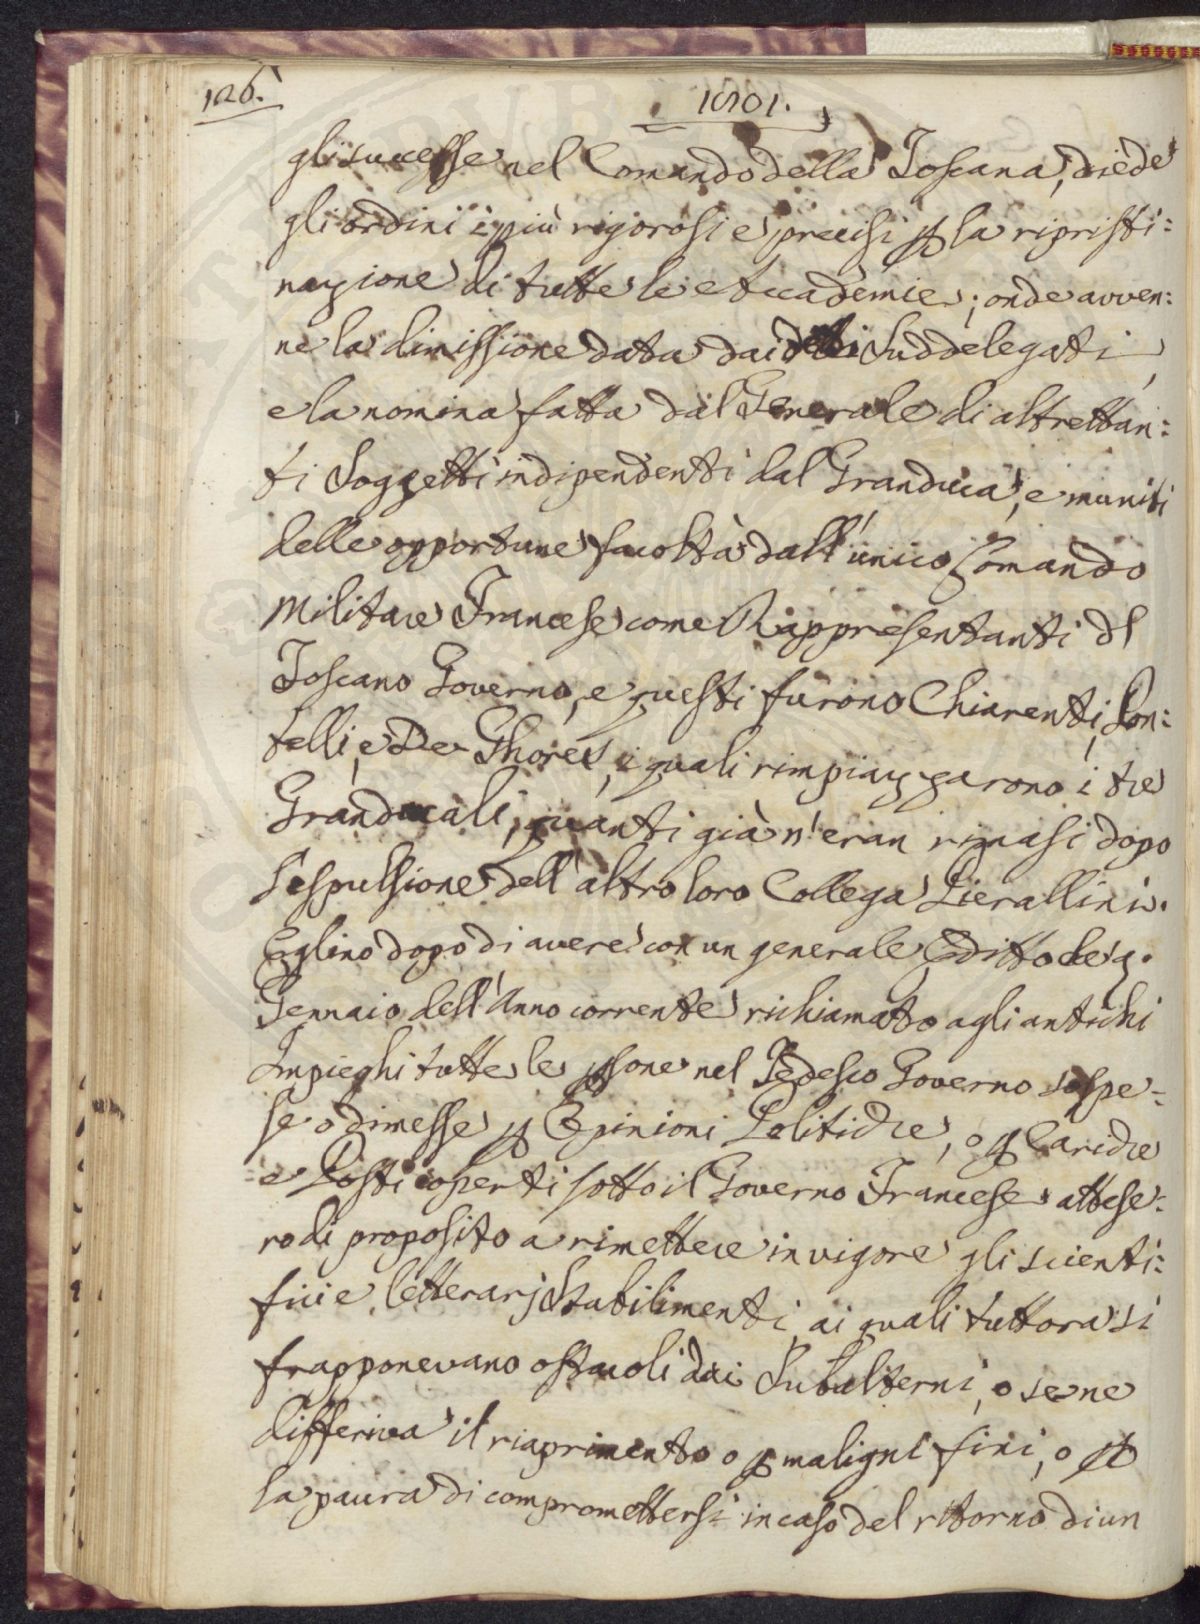 126.
1801.
gli successe nel Comando della Toscana, diede
gli ordini i più rigorosi e precisi p la ripristi:
nazione di tutte le Accademie; onde avven:
ne la dimissione data dai detti Suddelegati,
e la nomina fatta dal Generale di altrettan:
ti Soggetti indipendenti dal Granduca, e muniti
delle opportune facoltà dall'unico Comando
Militare Francese come Rappresentanti dl
Toscano Governo, e questi furono Chiarenti, Pon:
telli, e De Ghores, i quali rimpiazzarono i tre
Granducali, quanti già n'eran rimasi dopo
l'espulsione dell'altro loro Collega Pierallini.
Eglino dopo di avere con un generale Editto de' 9.
Gennaio dell'Anno corrente richiamato agli antichi
Impieghi tutte le psone nel Tedesco Governo sospe-
se o dimesse p Opinioni Politiche, o p Cariche
e Posti coperti sotto il Governo Francese, attese-
ro di proposito a rimettere in vigore gli scienti:
fici e letterarj Stabilimenti, ai quali tuttora si
frapponevano ostacoli dai Subalterni, o se ne
differiva il riaprimento o p maligni fini, o p
la paura di compromettersi in caso del ritorno di un